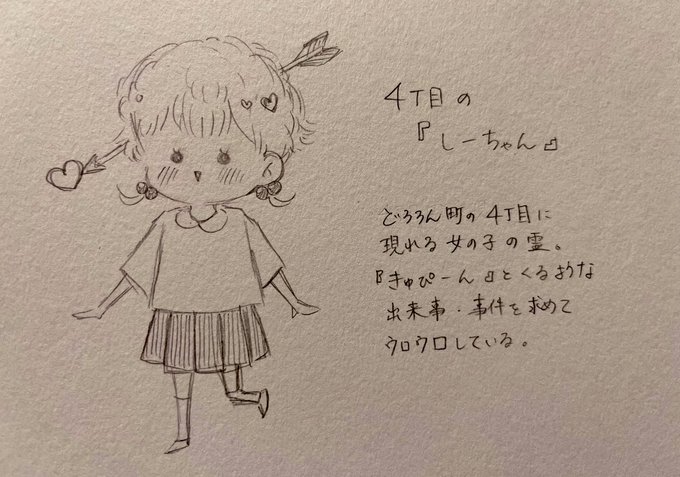 4丁目の
『しーちゃん』
どろろん町の4丁目に
現れる女の子の霊。
『きゅぴーん』とくるような
出来事・事件を求めて
ウロウロしている。